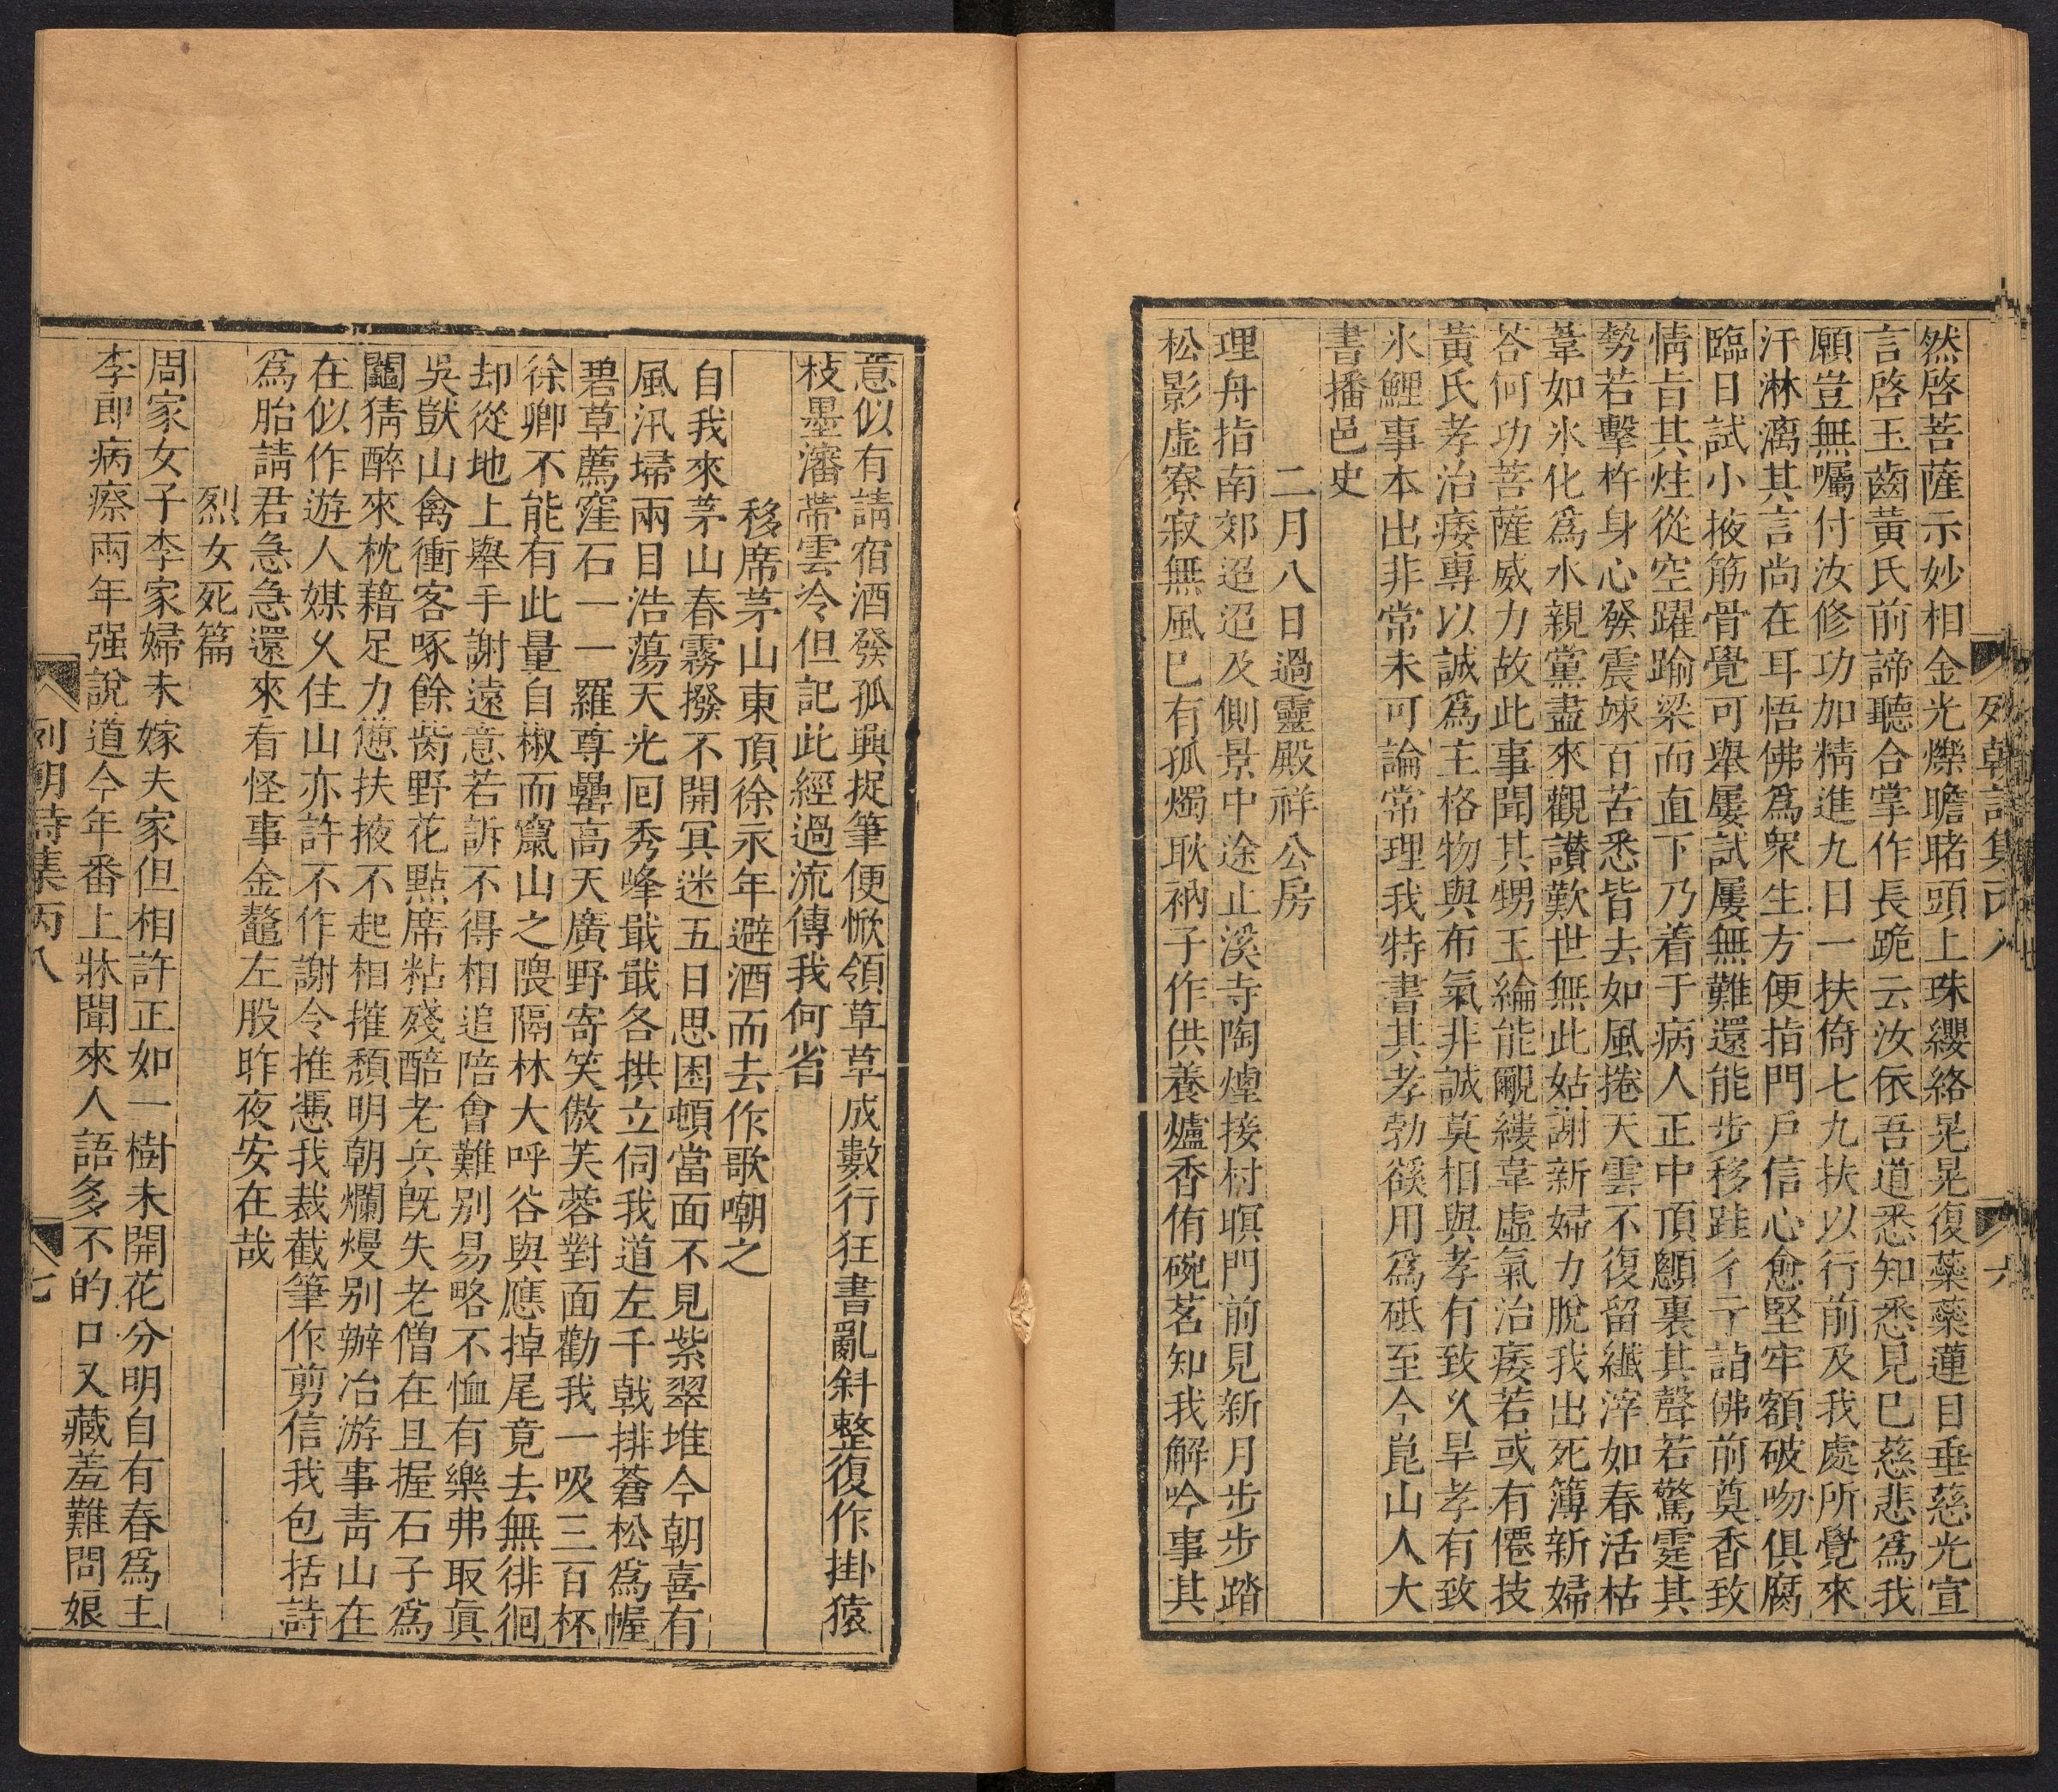 然啓菩薩示妙相金光爍瞻睹頭上珠纓絡晃晃復蘂蘂蓮目垂慈光宣
言啓玉齒黃氏前諦聽合掌作長跪云汝依吾道悉知悉見巳慈悲爲我
願豈無囑付汝修功加精進九日一扶倚七九扶以行前及我處所覺來
汗淋漓其言尚在耳悟佛爲衆生方便指門戶信心愈堅牢額破吻俱腐
臨日試小掖筋骨覺可舉屢試屢無難還能步移跬彳亍詣佛前奠香致
情旨其炷從空躍踰梁而直下乃着于病人正中頂顖裏其聲若驚霆其
勢若擊杵身心發震竦百苦悉皆去如風捲天雲不復留纖滓如春活枯
葦如氷化爲水親黨盡來觀讃歎世無此姑謝新婦力脫我出死簿新婦
荅何功菩薩威力故此事聞其甥王綸能覼縷韋虛氣治痿若或有僊技
黃氏孝治痿專以誠爲主格物與布氣非誠莫相與孝有致乆旱孝有致
氷鯉事本出非常未可論常理我特書其孝勃谿用爲砥至今崑山人大
書播邑史
二月八日過靈殿祥公房
理舟指南郊迢迢及側景中途止溪寺陶煙接村暝門前見新月步步踏
松影虛寮寂無風巳有孤燭耿衲子作供養爐香侑碗茗知我解吟事其
列朝詩集丙八
六
意似有請宿酒發孤興捉筆便慚領草草成數行狂書亂斜整復作掛猿
枝墨瀋帶雲冷但記此經過流傳我何省
移席茅山東頂徐永年避酒而去作歌嘲之
自我來茅山春霧撥不開冥迷五日思困頓當面不見紫翠堆今朝喜有
風汛埽兩目浩蕩天光回秀峰戢戢各拱立伺我道左千戟排蒼松爲幄
碧草薦窪石一一羅尊罍高天廣野寄笑傲芙蓉對面勸我一吸三百杯
徐卿不能有此量自椒而竄山之隈隔林大呼谷與應掉尾竟去無徘徊
却從地上舉手謝遠意若訴不得相追陪會難别易略不恤有樂弗取眞
吳獃山禽衝客啄餘胾野花點席粘殘醅老兵旣失老僧在且握石子爲
鬮猜醉來枕藉足力憊扶掖不起相摧頹明朝爛熳别辦冶游事靑山在
在似作遊人媒乆住山亦許不作謝令推憑我裁截筆作剪信我包括詩
爲胎請君急急還來看怪事金鼇左股昨夜安在哉
烈女死篇
周家女子李家婦未嫁夫家但相許正如一樹未開花分明自有春爲主
李郎病瘵兩年强說道今年番上牀聞來人語多不的口又藏羞難問娘
列朝詩集丙八
七